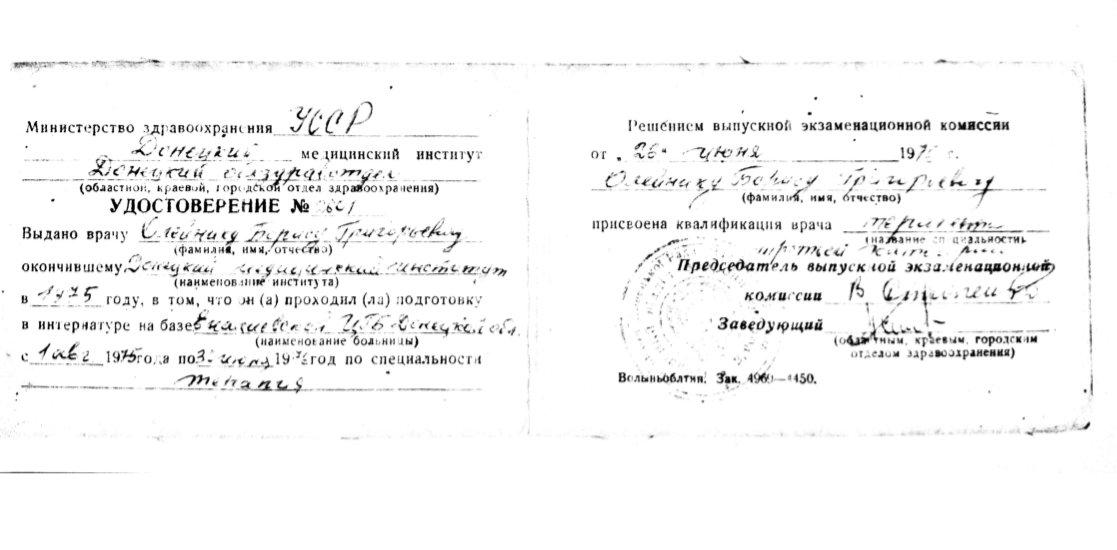 Министерство здравоохранения УССР
Донецкий медицинский институт
Донецкий облздравотдел
(областной, краевой, городской отдел здравоохранения)
УДОСТОВЕРЕНИЕ №
Выдано врачу Олейнику Борису Григорьевичу
(фамилия, имя, отчество)
окончившему Донецкий медицинский институт
(наименование института)
в 1975 году, в том, что он (а) проходил (ла) подготовку
в интернатуре на базе Енакиевской ЦГБ Донецкой обл.
(наименование больницы)
с 1 авг 1975 года по июня 197 год по специальности
терапия
Решением выпускной экзаменационной комиссии
от „26" июня 197 г.
Олейнику Борису Григорьевичу
(фамилия, имя, отчество)
присвоена квалификация врача
(название специальности)
Председатель выпускной экзаменационной
комиссии В
Заведующий
(областным, краевым, городским
отделом здравоохранения)
Волыньоблтип. Зак. 4960—4450.